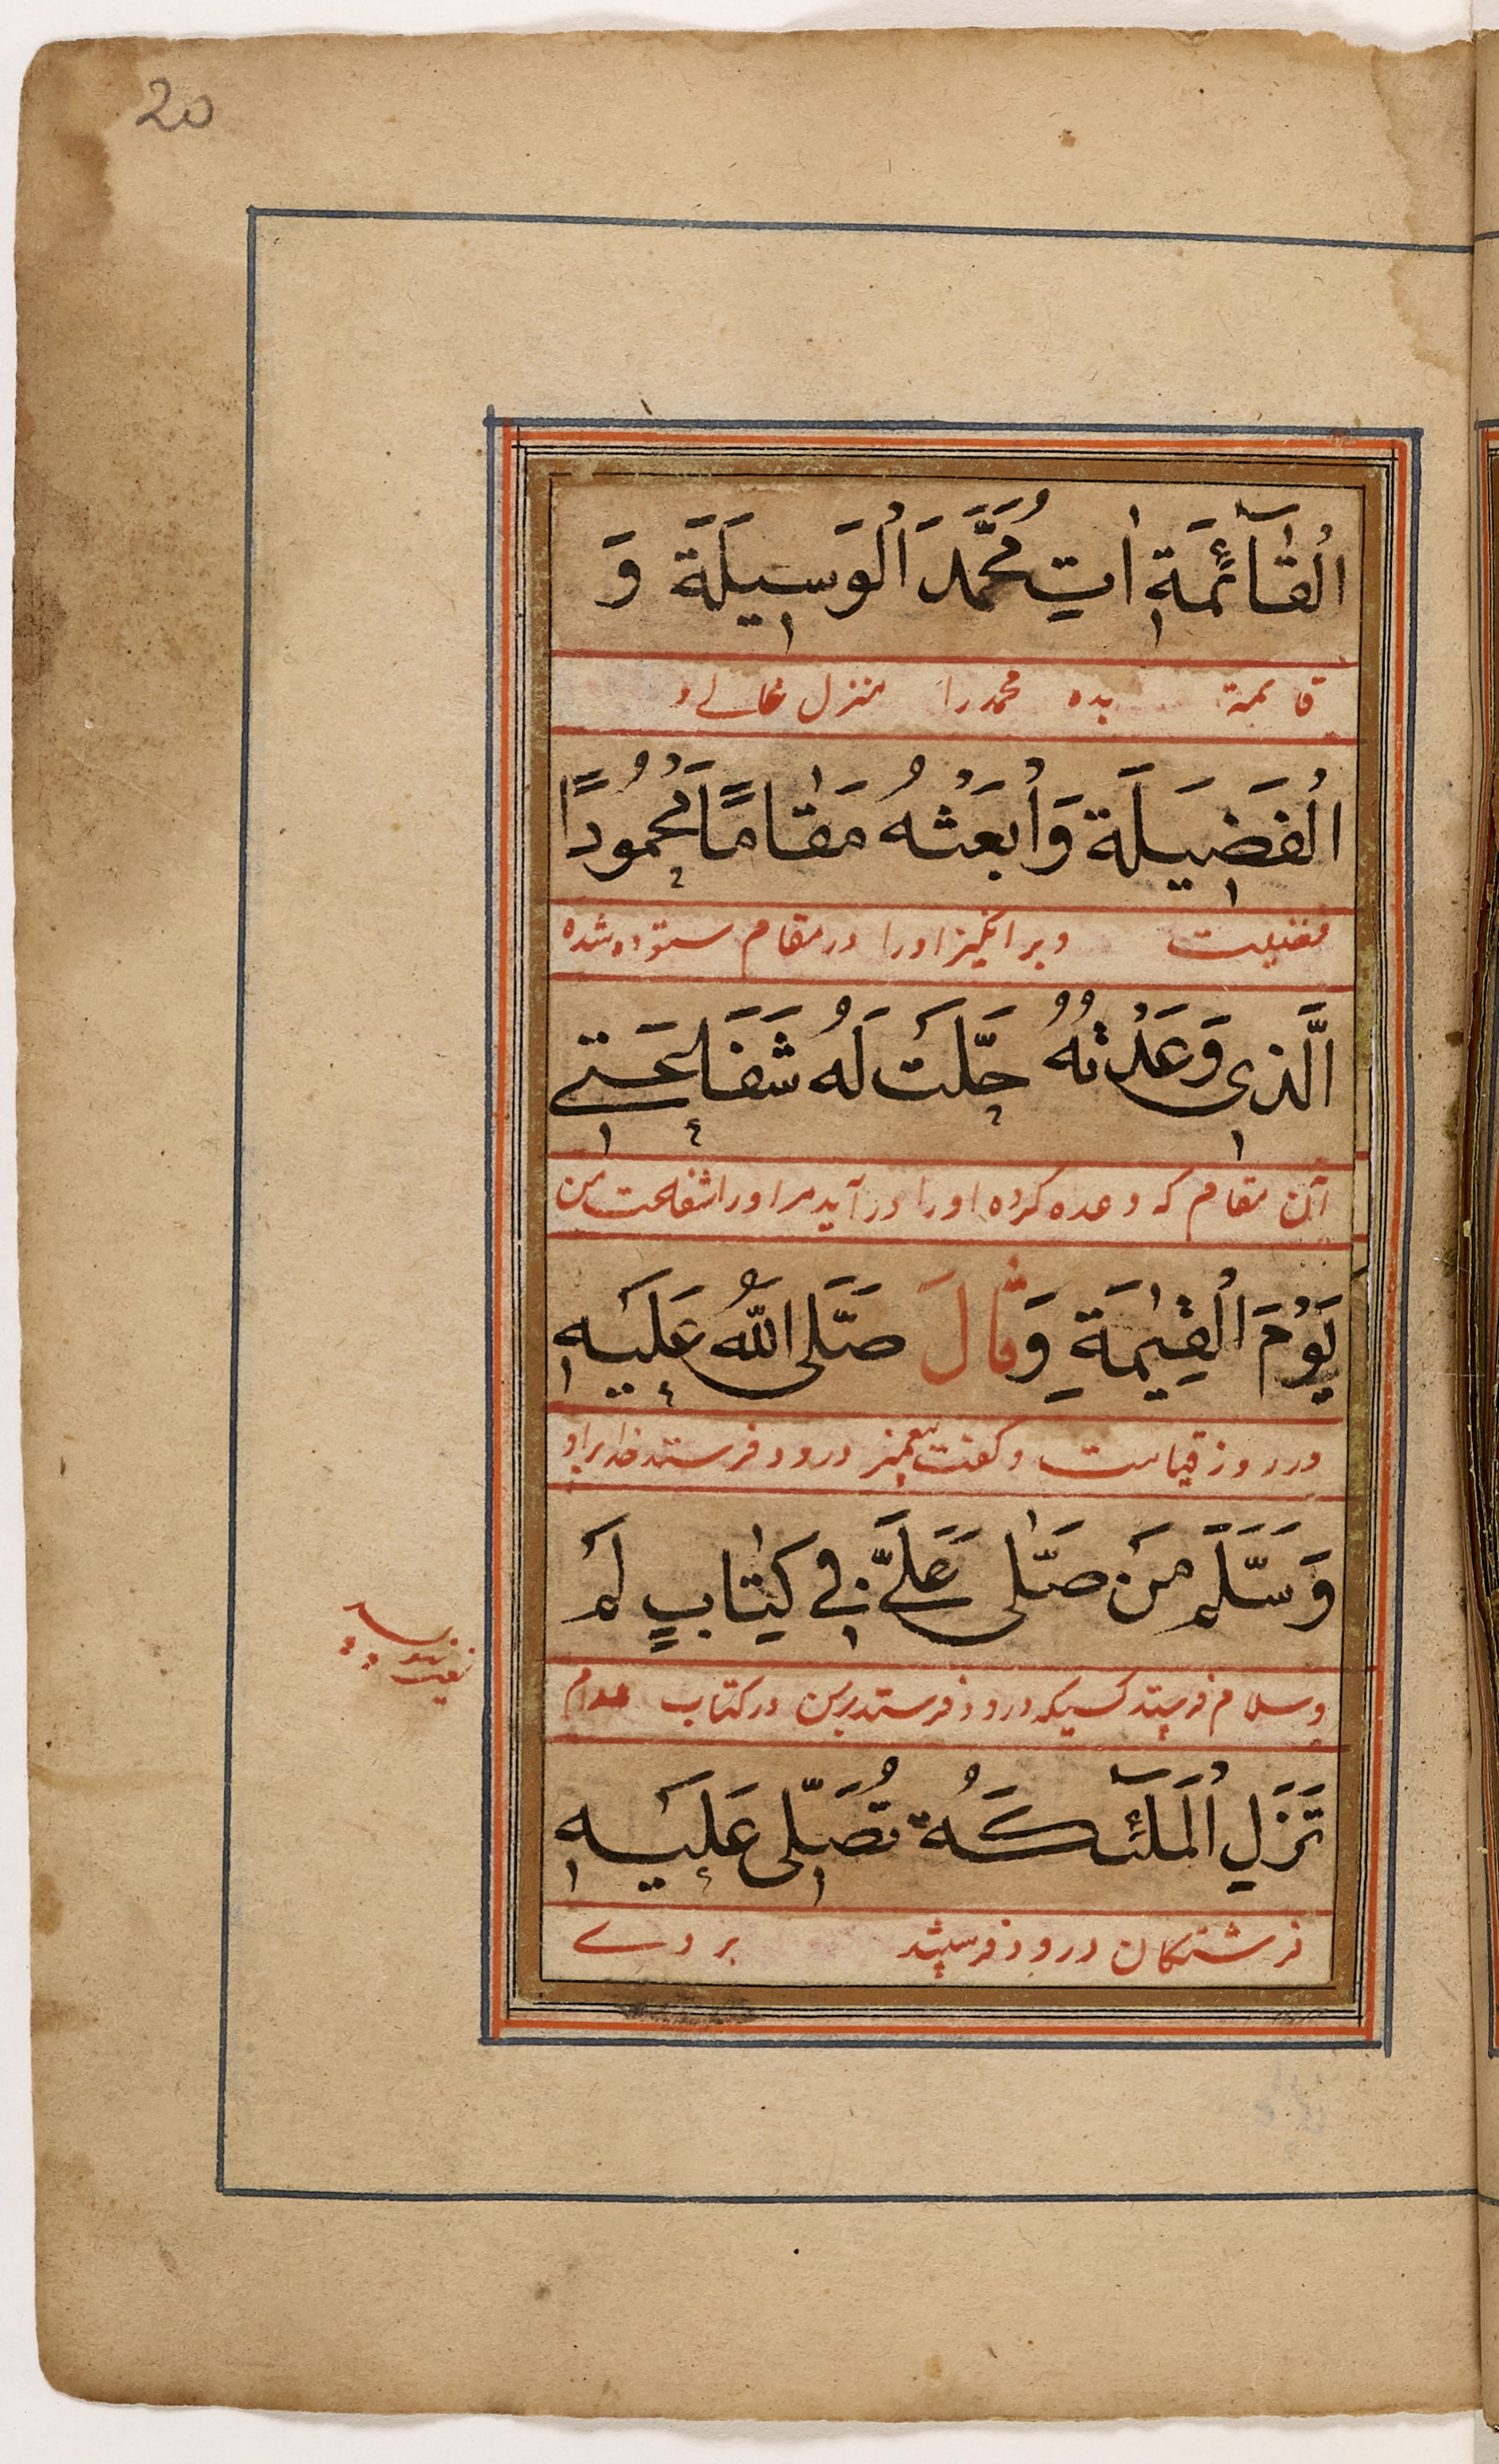 20
الْقَآئِمَةِ اٰتِ مُحَمَّدَ الْوَسِيلَةَ وَ
قائمة بده محمد را منزل عالے و
الْفَضِيلَةَ وَابْعَثْهُ مَقَامًا مَحْمُودًا
فضیلت و بر انگیز او را در مقام ستوده شده
الَّذِي وَعَدْتَهُ حَلَّتْ لَهُ شَفَاعَتِي
آن مقام که وعده کرده او را در آید مر او را شفاعت من
يَوْمَ الْقِيٰمَةِ وَقَالَ صَلَّى اللّٰهُ عَلَيْهِ
در روز قیامت و گفت پیغمبر درود فرستد خدا بر او
وَسَلَّمَ مَنْ صَلّٰى عَلَيَّ فِي كِتٰابٍ لَمْ
و سلام فرستد کسیکه درود فرستد بر من در کتاب مدام
تَزَلِ الْمَلٰٓئِكَةُ تُصَلِّي عَلَيْهِ
فرشتکان درود فرستند بر وے